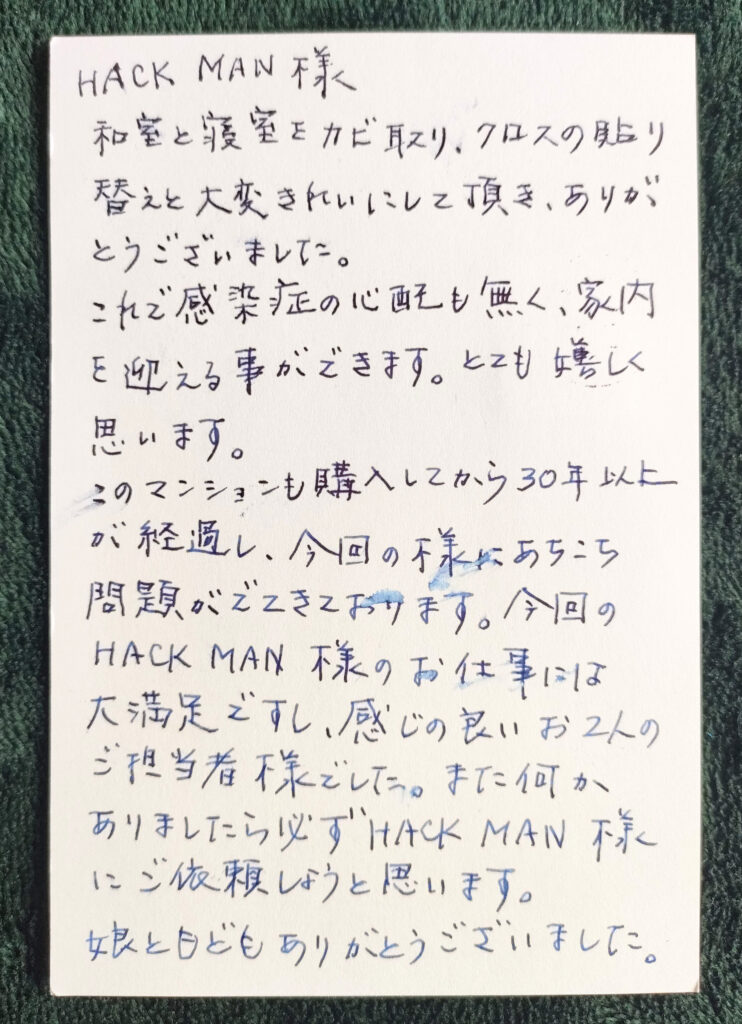 HACK MAN 様
和室と寝室をカビ取り、クロスの貼り
替えと大変きれいにして頂き、ありが
とうございました。
これで感染症の心配も無く、家内
を迎える事ができます。とても嬉しく
思います。
このマンションも購入してから30年以上
が経過し、今回の様にあちこち
問題がでてきております。今回の
HACK MAN 様のお仕事には
大満足ですし、感じの良いお2人の
ご担当者様でした。また何か
ありましたら必ずHACK MAN 様
にご依頼しようと思います。
娘と ども ありがとうございました。